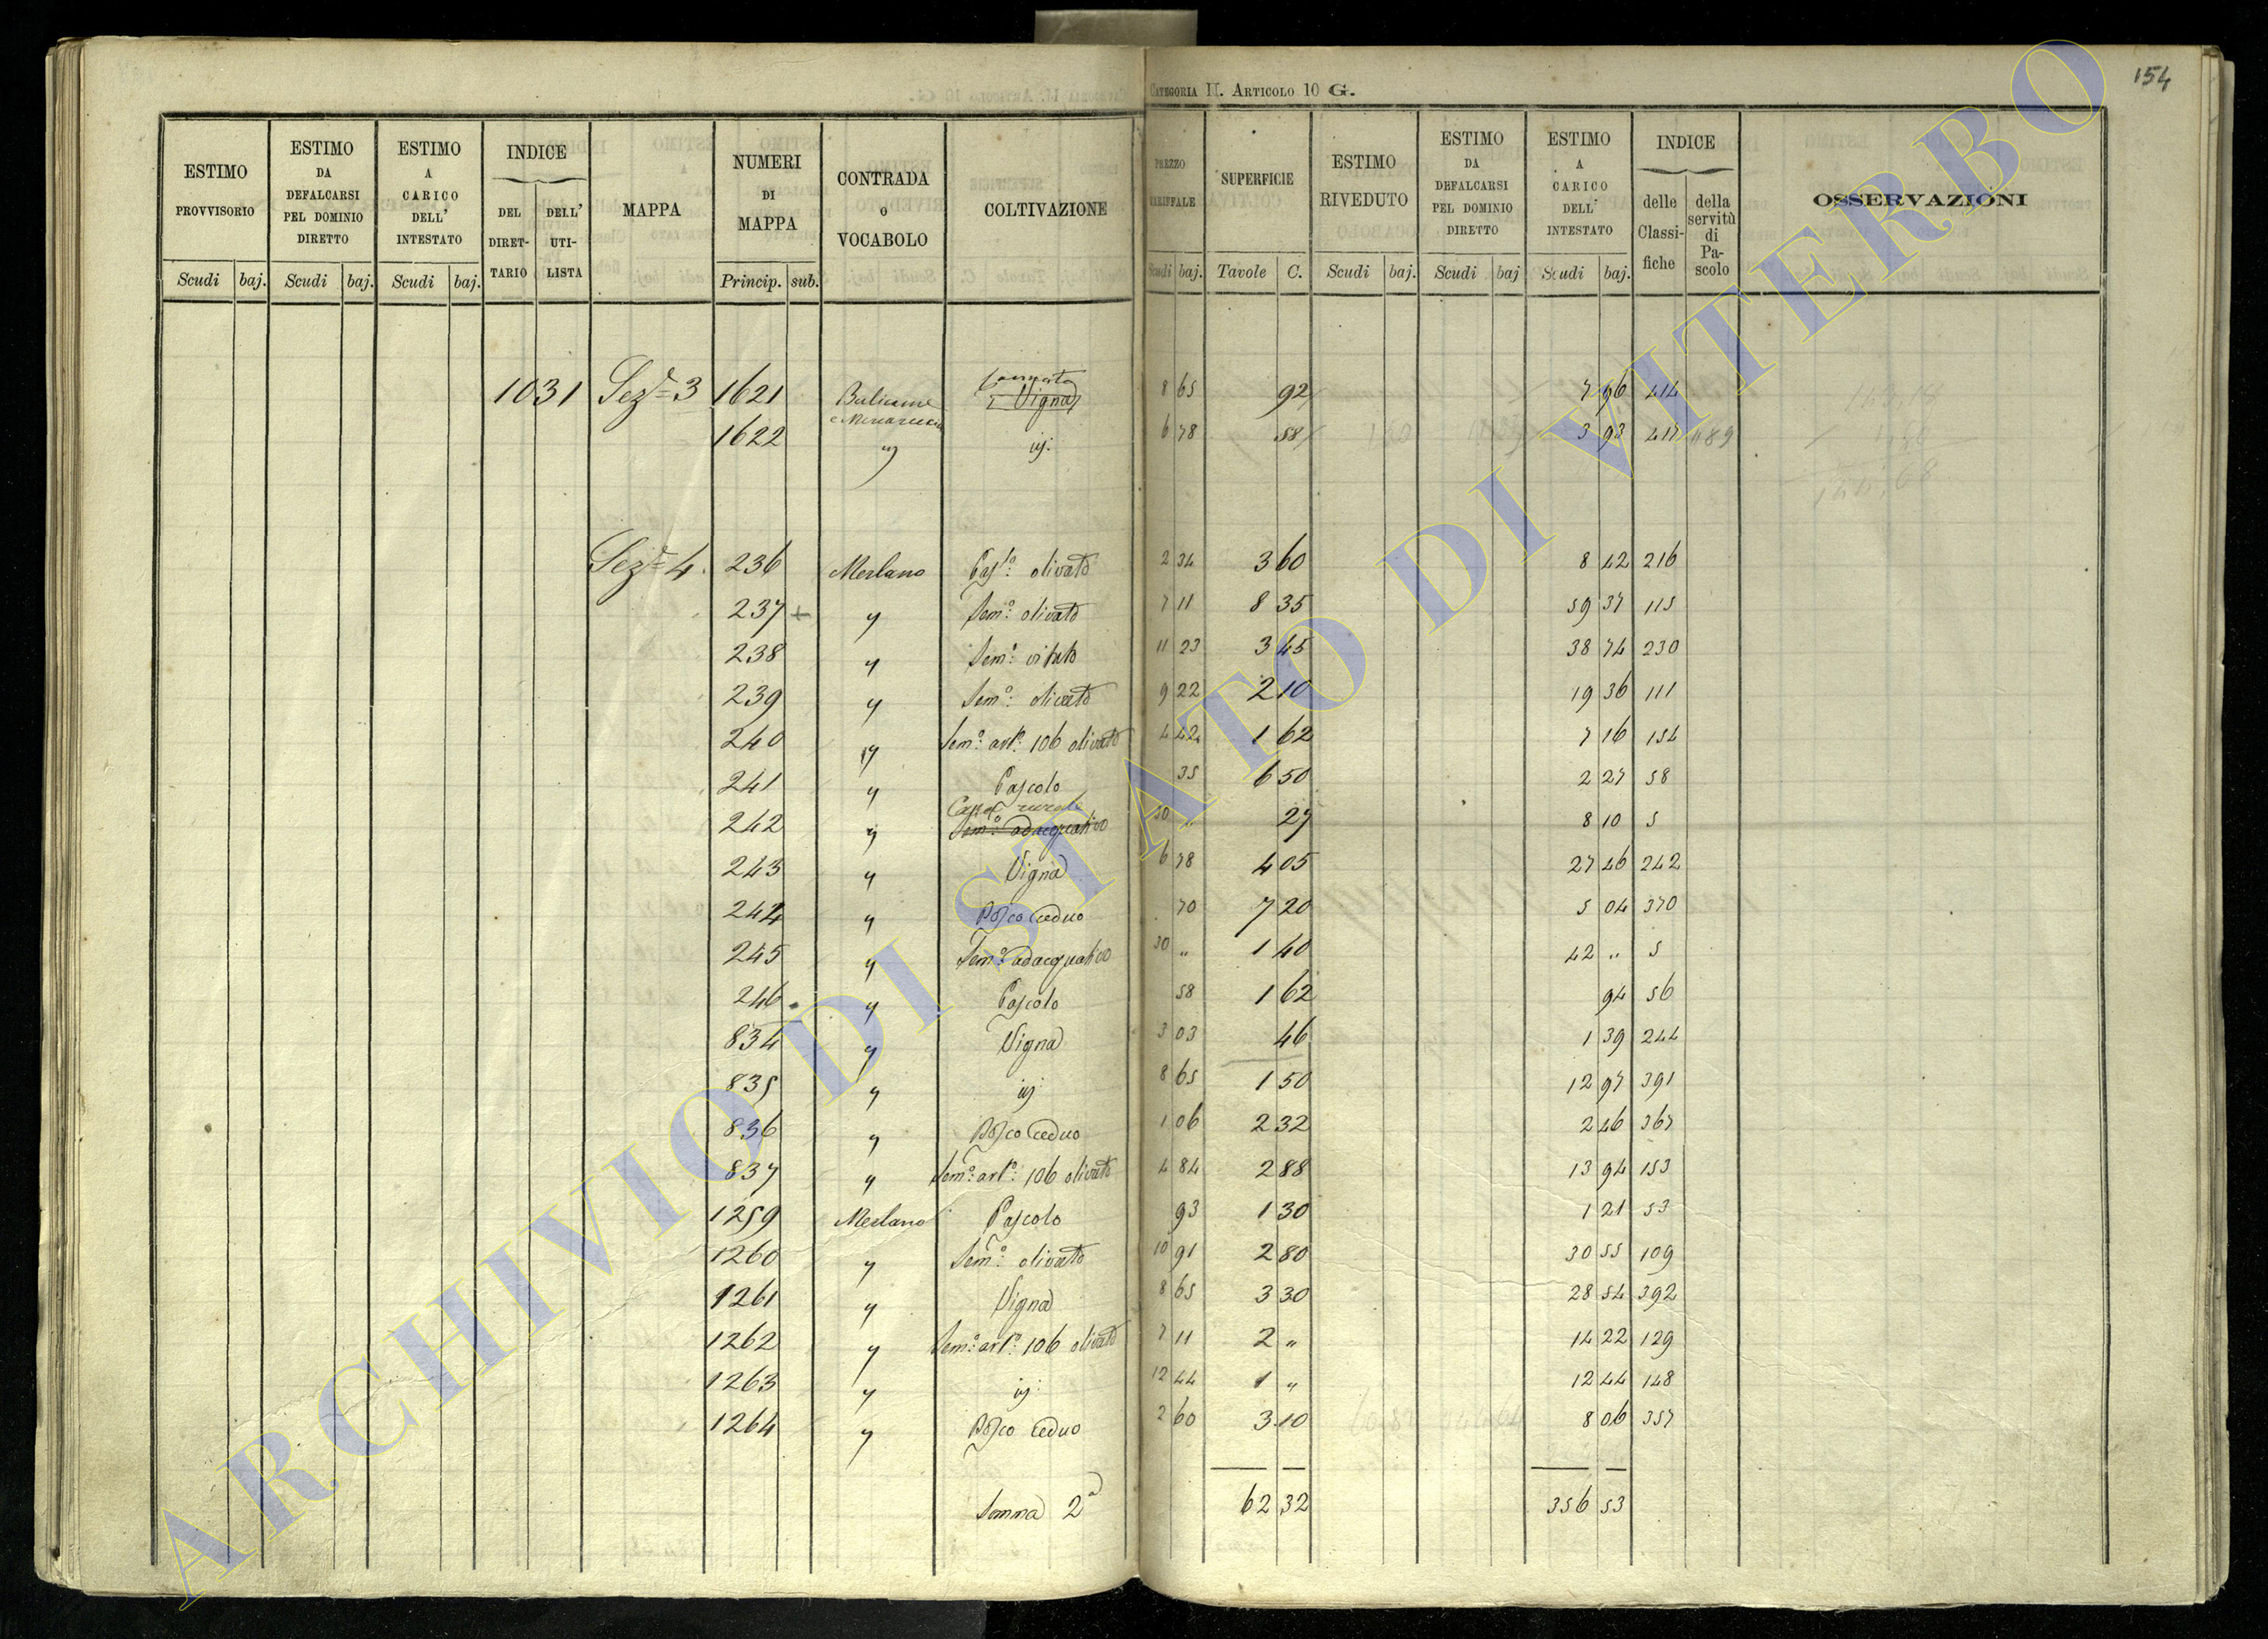 154
CATEGORIA II. ARTICOLO 10 G.
ESTIMO PROVVISORIO
ESTIMO DA DEFALCARSI PEL DOMINIO DIRETTO
ESTIMO A CARICO DELL' INTESTATO
INDICE
DEL DIRET-TARIO
DELL' UTI-LISTA
MAPPA
NUMERI DI MAPPA
CONTRADA O VOCABOLO
COLTIVAZIONE
PREZZO TARIFFALE
SUPERFICIE
ESTIMO RIVEDUTO
ESTIMO DA DEFALCARSI PEL DOMINIO DIRETTO
ESTIMO A CARICO DELL' INTESTATO
INDICE
delle Classi-fiche
della servitù di Pa-scolo
OSSERVAZIONI
Scudi baj. Scudi baj. Scudi baj. Princip. sub. Scudi baj. Tavole C. Scudi baj. Scudi baj Scudi baj.
1031 Sez.e 3 1621 Vigna 8 65 92 7 96 414
1622 " id: 6 78 58 3 93 417
Sez.e 4. 236 Merlano Pas.o olivato 2 34 3 60 8 42 216
237 + " Sem.o olivato 7 11 8 35 59 37 115
238 " Sem.o vitato 11 23 3 45 38 74 230
239 " Sem.o olivato 9 22 2 10 19 36 111
240 " Sem.o art.o 106 olivato 4 42 1 62 7 16 154
241 " Pascolo 35 6 50 2 27 58
242 " Sem.o adacquativo 30 " 27 8 10 5
243 " Vigna 6 78 4 05 27 46 242
244 " Bosco Ceduo 70 7 20 5 04 370
245 " Sem.o adacquativo 30 " 1 40 42 " 5
246 " Pascolo 58 1 62 94 56
834 " Vigna 3 03 46 1 39 244
835 " id 8 65 1 50 12 97 391
836 " Bosco Ceduo 1 06 2 32 2 46 367
837 " Sem.o art.o 106 olivato 4 84 2 88 13 94 153
1259 Merlano Pascolo 93 1 30 1 21 53
1260 " Sem.o olivato 10 91 2 80 30 55 109
1261 " Vigna 8 65 3 30 28 54 392
1262 " Sem.o art.o 106 olivato 7 11 2 " 14 22 129
1263 " id: 12 44 1 " 12 44 148
1264 " Bosco Ceduo 2 60 3 10 8 06 357
Somma 2a 62 32 356 53
ARCHIVIO DI STATO DI VITERBO